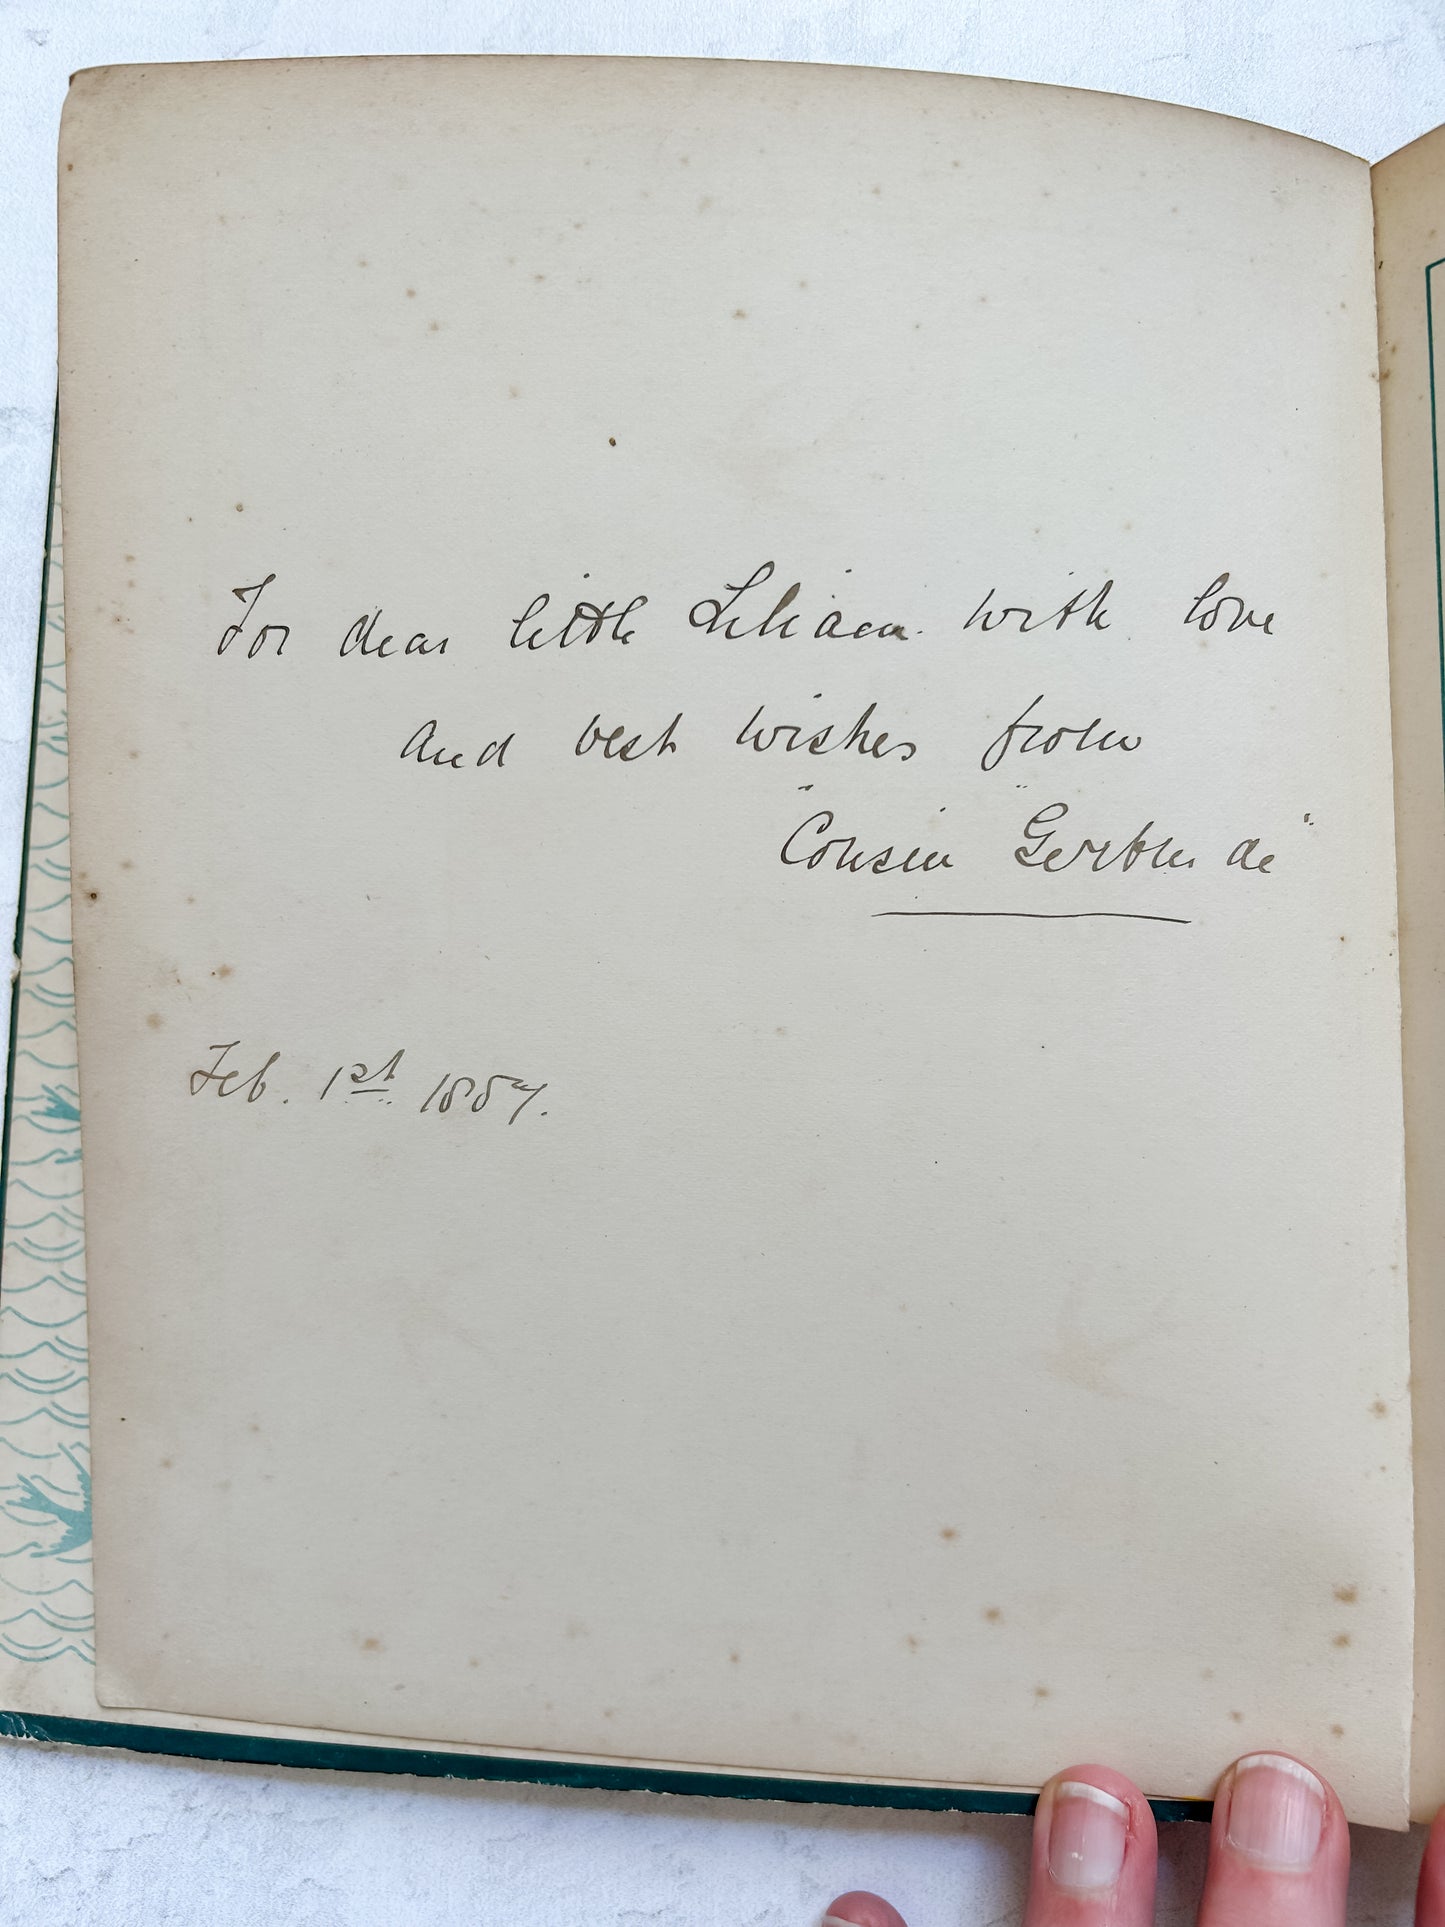 For dear little Lilian with love
and best wishes from
"Cousin "Gertrude"
Feb. 1st 1887.